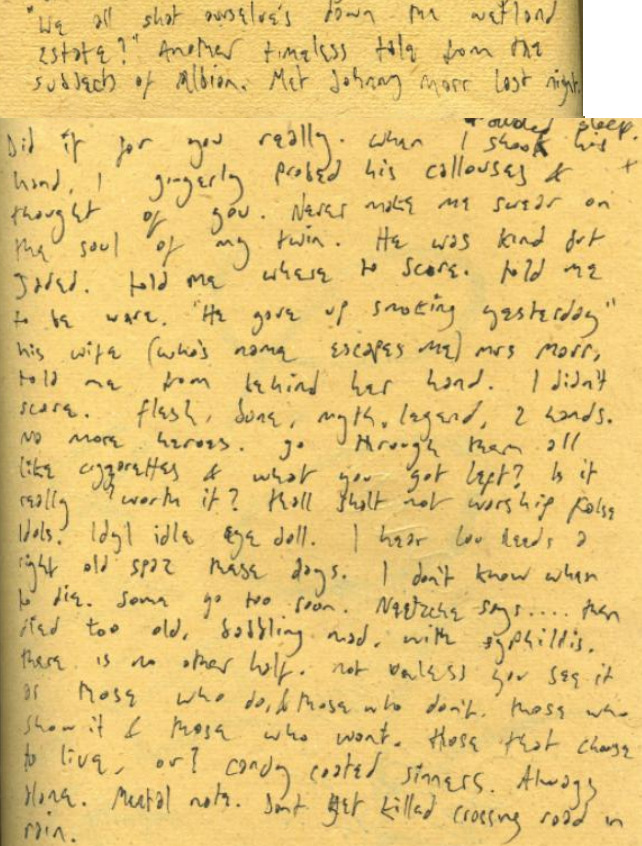 "We all shot ourselve's down the wetland
Estate?" Another timeless tale from the
subjects of Albion. Met Johnny Marr last night.
avoided sleep.
Did it for you really. When I shook his
hand, I gingerly probed his callouses &
thought of you. Never make me swear on
the soul of my twin. He was kind but
Jaded. told me where to score. told me
to be ware. "He gave up smoking yesterday"
his wife (who's name escapes me) mrs Marr,
told me from behind her hand. I didn't
score. flesh, bone, myth, legend, 2 hands.
No more heroes. go through them all
like ciggarettes & what you got left? Is it
really worth it? thall shalt not worship false
Idols. Idyl idle eye doll. I hear Lou needs a
right old spaz these days. I don't know when
to die. Some go too soon. Neetzche says.... then
died too old, babbling mad, with syphillis.
there is no other half. not unless you see it
as those who do, & those who don't. those who
show it & those who wont. those that choose
to live, or? candy coated sinners. Always
Alone. Mental note. Dont get killed crossing road in
rain.